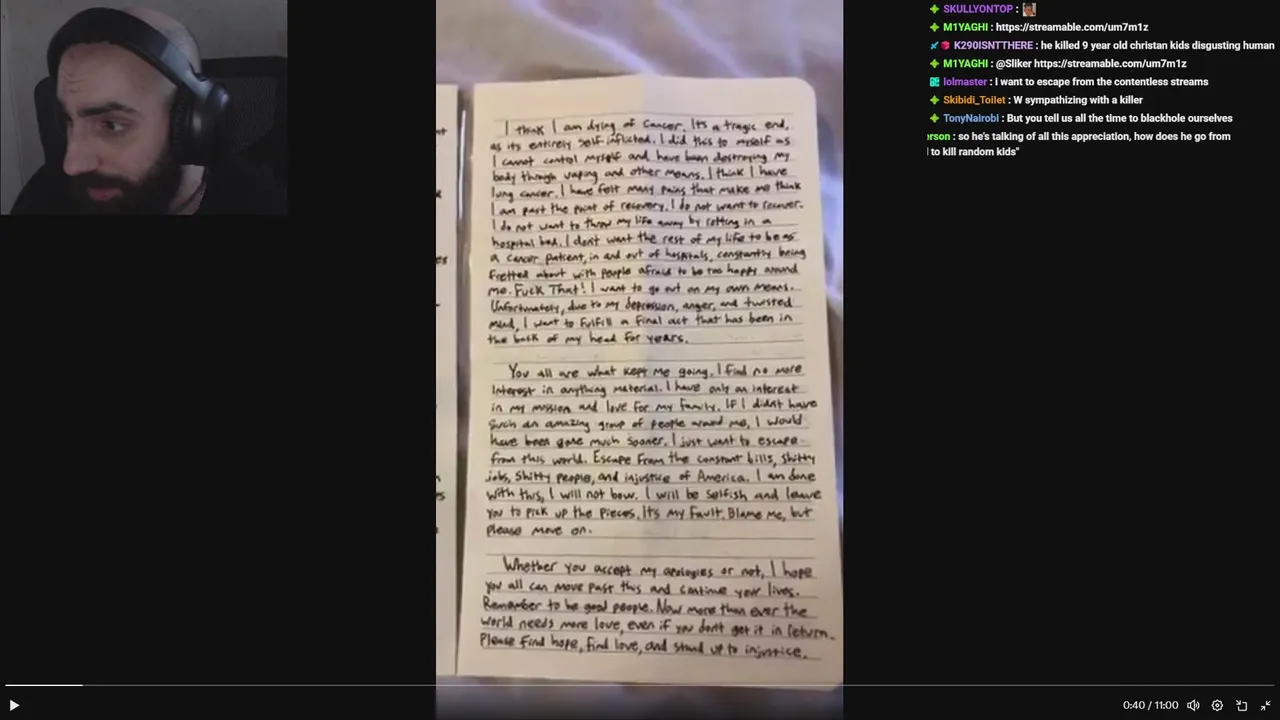 SKULLYONTOP :
M1YAGHI : https://streamable.com/um7m1z
K290ISNTTHERE : he killed 9 year old christan kids disgusting human
M1YAGHI : @Sliker https://streamable.com/um7m1z
lolmaster : I want to escape from the contentless streams
Skibidi_Toilet : W sympathizing with a killer
TonyNairobi : But you tell us all the time to blackhole ourselves
erson : so he's talking of all this appreciation, how does he go from
d to kill random kids"
I think I am dying of cancer. Its a tragic end,
as its entirely self-inflicted. I did this to myself as
I cannot control myself and have been destroying my
body through vaping and other means. I think I have
lung cancer. I have felt many pains that make me think
I am past the point of recovery. I do not want to recover.
I do not want to throw my life away by rotting in a
hospital bed. I dont want the rest of my life to be as
a cancer patient, in and out of hospitals, constantly being
fretted about with people afraid to be too happy around
me. Fuck That! I want to go out on my own means.
Unfortunately, due to my depression, anger, and twisted
mind, I want to fulfill a final act that has been in
the back of my head for years.
You all are what kept me going. I find no more
interest in anything material. I have only an interest
in my mission and love for my family. If I didnt have
such an amazing group of people around me, I would
have been gone much sooner. I just want to escape
from this world. Escape from the constant bills, shitty
jobs, shitty people, and injustice of America. I am done
with this, I will not bow. I will be selfish and leave
you to pick up the pieces. Its my fault. Blame me, but
please move on.
Whether you accept my apologies or not, I hope
you all can move past this and continue your lives.
Remember to be good people. Now more than ever the
world needs more love, even if you dont get it in return.
Please find hope, find love, and stand up to injustice.
0:40 / 11:00